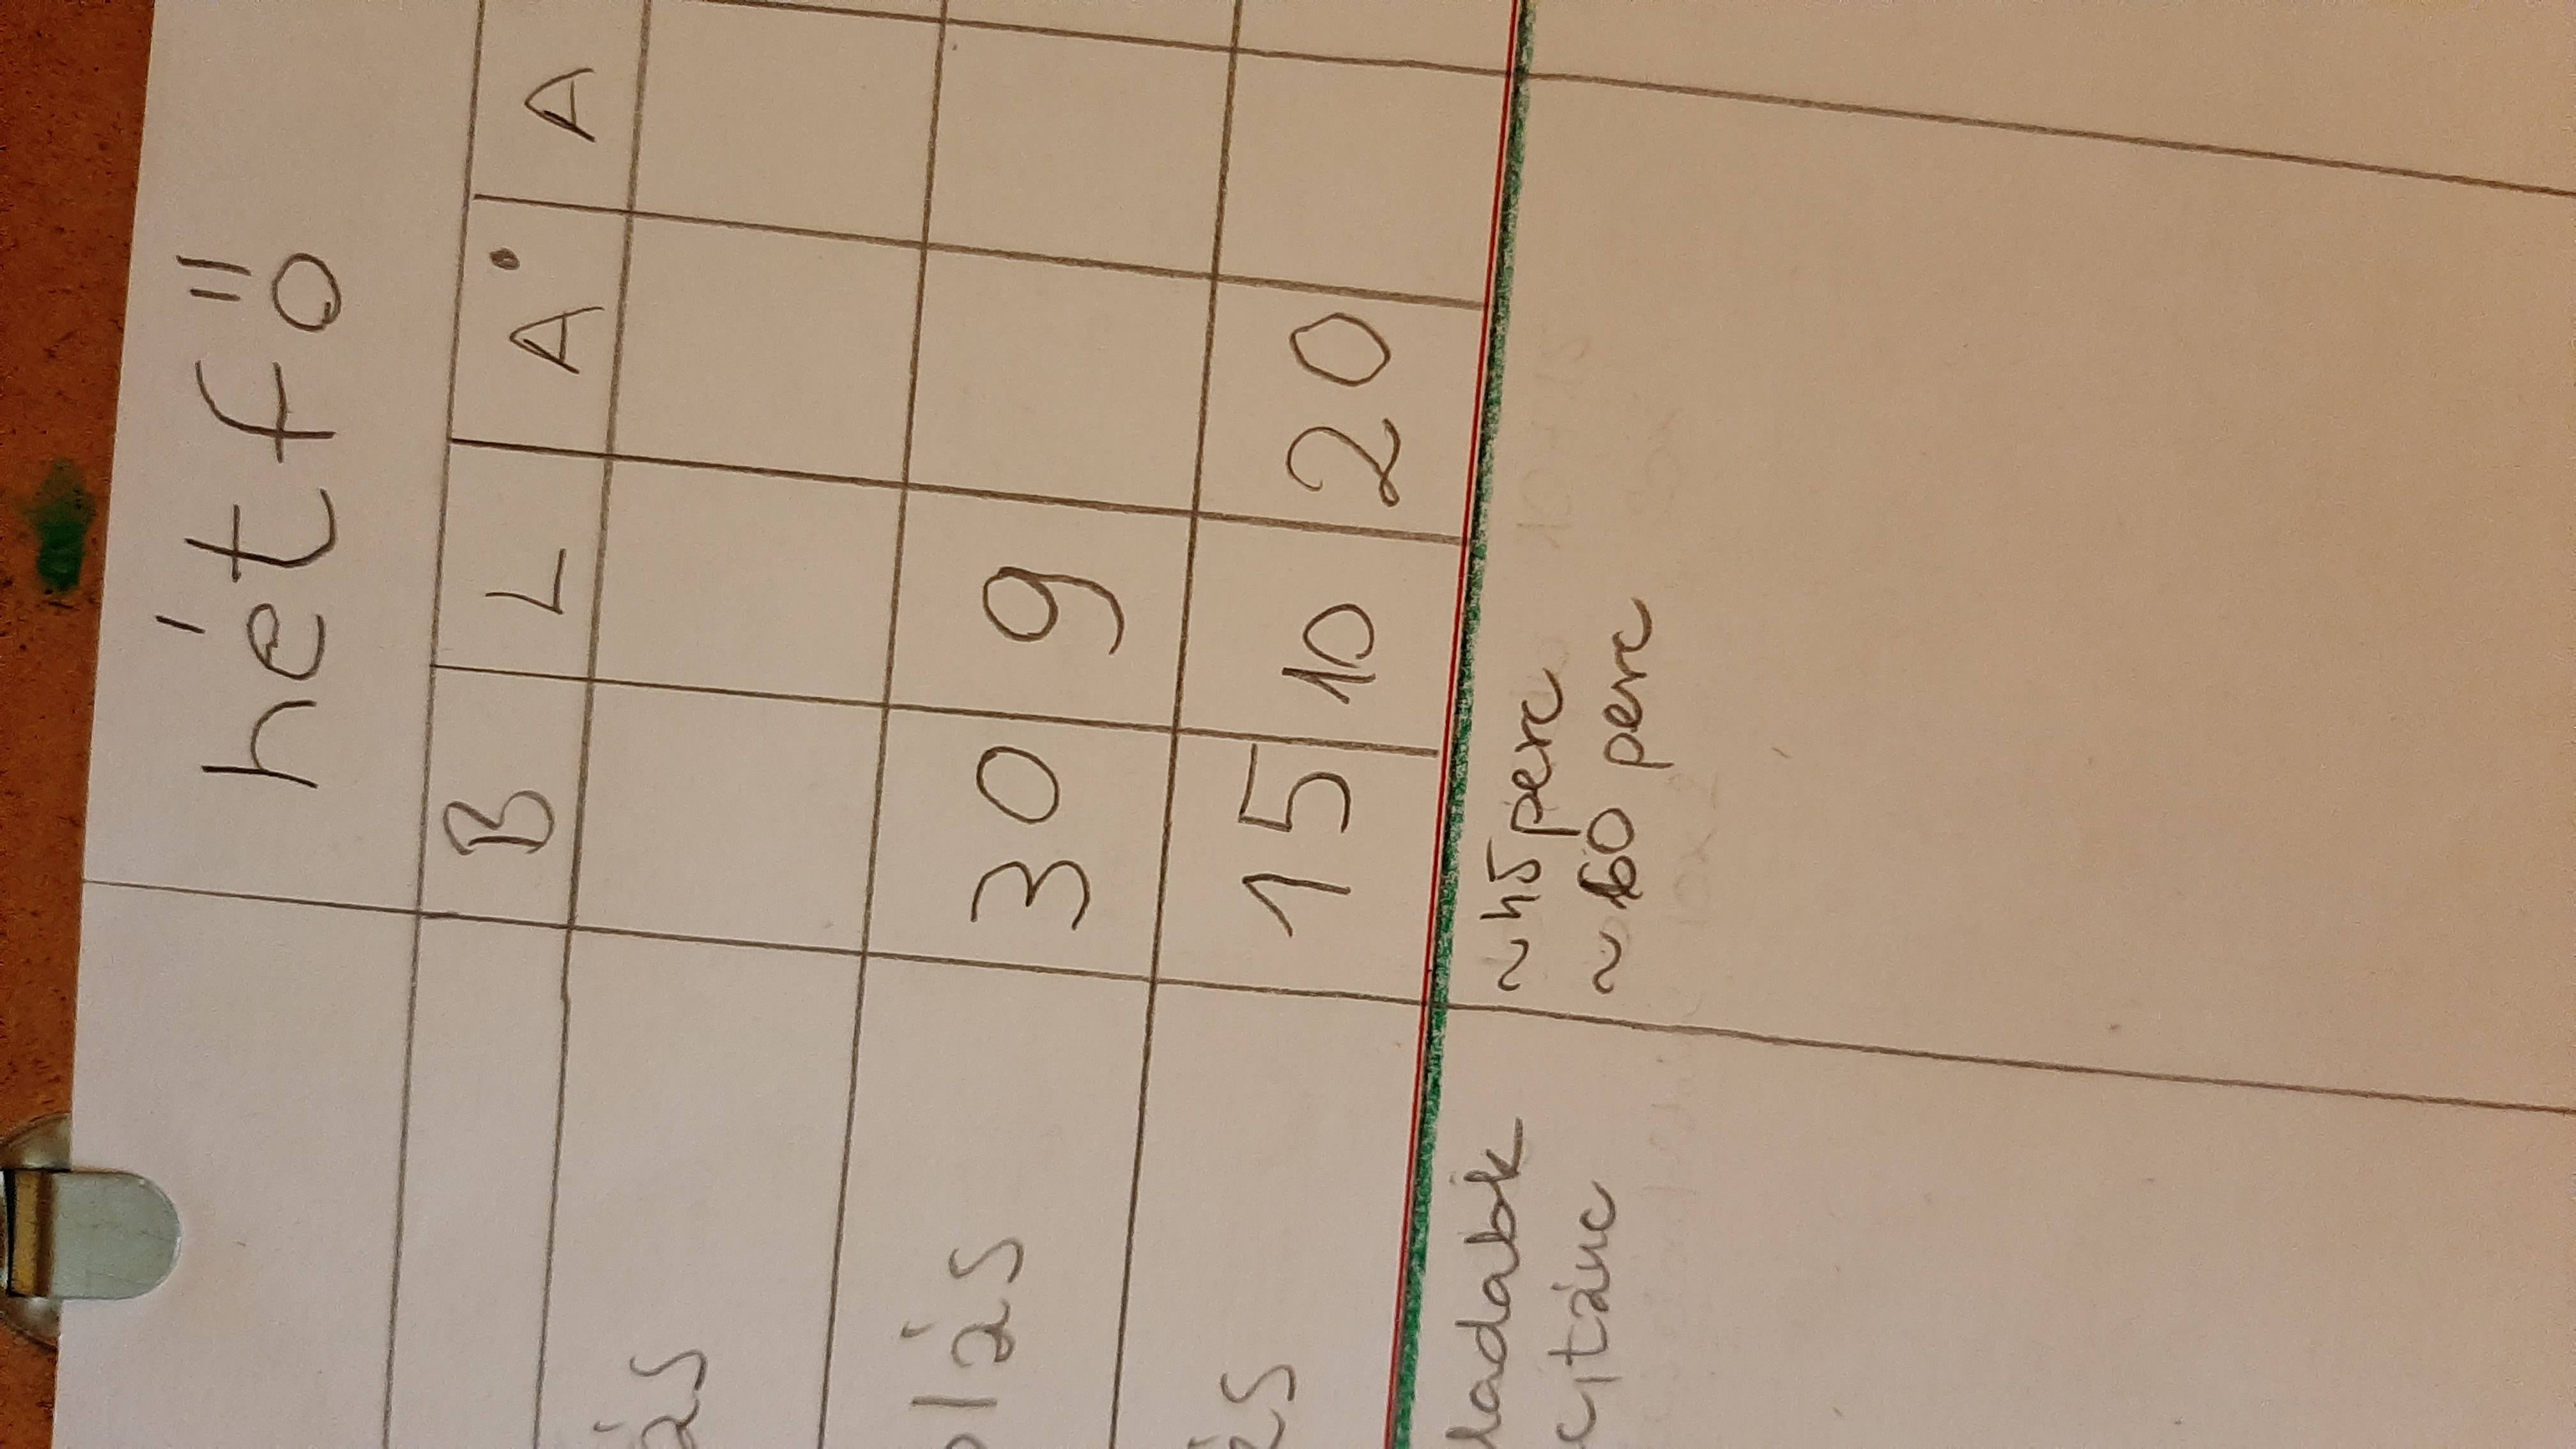 hétfő
B L A• A
ás
olás 30 9
ás 15 10 20
ladatok ~45 perc
citánc ~60 perc